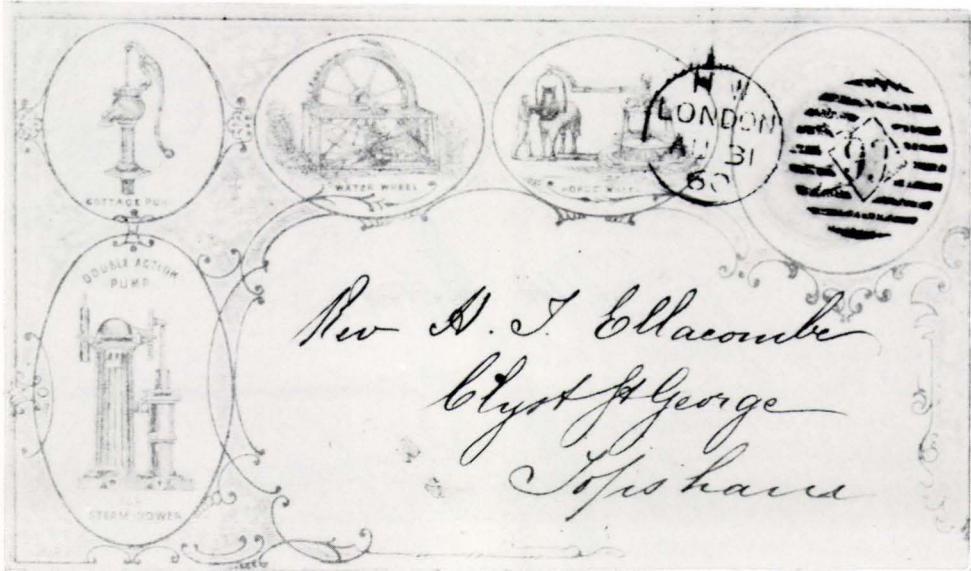 COTTAGE PUMP
WATER WHEEL
HORSE WHEEL
LONDON
AU 31
60
DOUBLE ACTION
PUMP
STEAM POWER
Rev H. T. Ellacombe
Clyst St George
Topsham